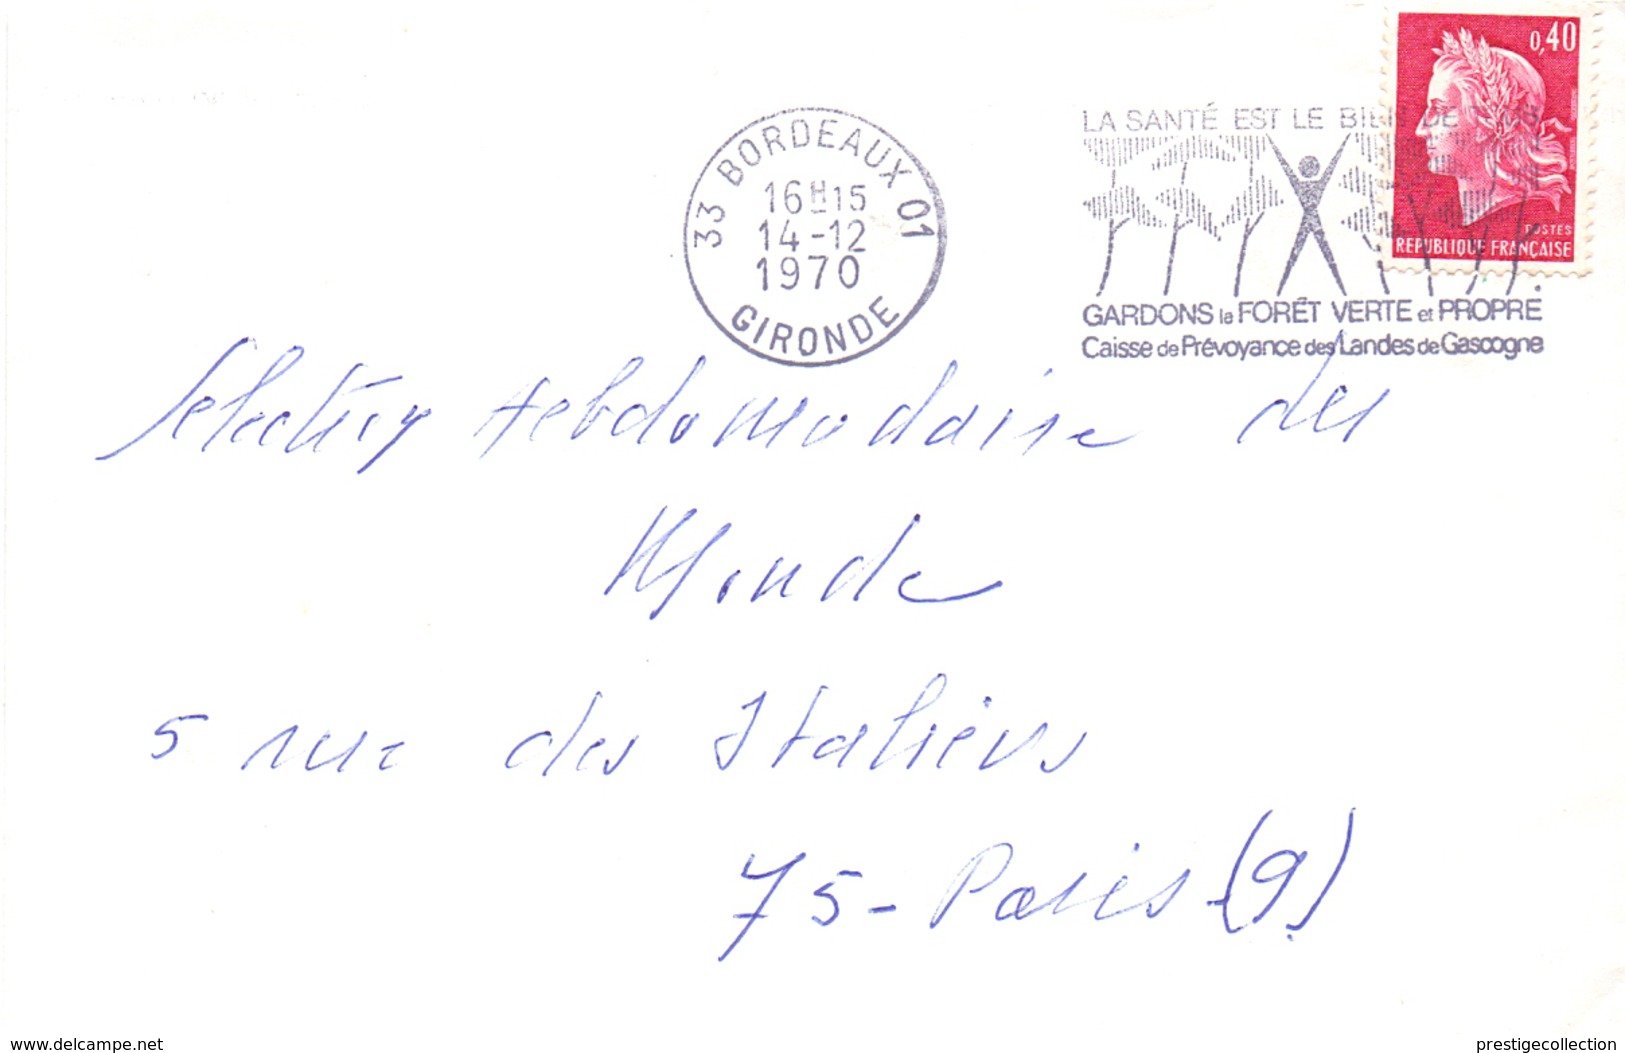 0,40
LA SANTÉ EST LE BIEN DE TOUS
33 BORDEAUX 01
16H15
14-12
1970
GIRONDE
POSTES
REPUBLIQUE FRANÇAISE
GARDONS la FORÊT VERTE et PROPRE
Caisse de Prévoyance des Landes de Gascogne
Selection Hebdomadaire des
Monde
5 rue des Italiens
75 - Paris - (9)
www.delcampe.net
prestigecollection